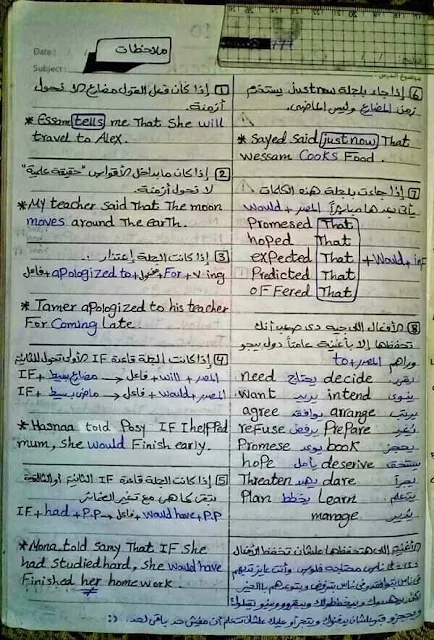 ملاحظات
Date:
Subject:
1 إذا كان فعل القول مضارع لا نحول
أزمنة.
* Essam tells me That She will
travel to Alex.
2 إذا كان ما بداخل الأقواس "حقيقة علمية"
لا نحول أزمنة.
* My teacher said That The moon
moves around The earth.
3 إذا كانت الجملة إعتذار
فاعل + apologized to + مفعول + For + v ing
* Tamer apologized to his teacher
For Coming late.
4 إذا كانت الجملة قاعدة IF الأولى تحول للثانية
IF + مضارع بسيط → فاعل + will + المصدر
IF + ماضى بسيط → فاعل + would + المصدر
* Hasnaa told Posy IF I helped
mum, She would Finish early.
5 إذا كانت الجملة قاعدة IF الثانية أو الثالثة
تبقى كما هى مع تغير الضمائر
IF + had + P.P → فاعل + would have + P.P
* Nona told Samy That IF She
had studied hard, She would have
Finished her homework.
6 إذا جاء بالجملة Just now يستخدم
زمن المضارع وليس الماضى.
* Sayed Said just now That
wessam Cooks Food.
7 إذا جاءت بالجملة هذه الكلمات
يأتى بعدها مباشراً المصدر + would
Promesed That
hoped That
expected That + Would + inf
Predicted That
oFFered That
8 الأفعال اللى جية دى صعب أنك
تحفظها إلا بأغنية عامتاً دول بيجو
وراهم المصدر + to
need يحتاج decide يقرر
want يريد intend ينوى
agree يوافق arrange يرتب
refuse يرفض Prepare
Promese يوعد book يحجز
hope يأمل deserve يستحق
Threaten يهدد dare يجرأ
Plan يخطط Learn يتعلم
manage يدير
الأغنية اللى هتحفظها علشان تحفظ الأفعال
فى ناس محتاجه فلوس وأنت عايز تديهم